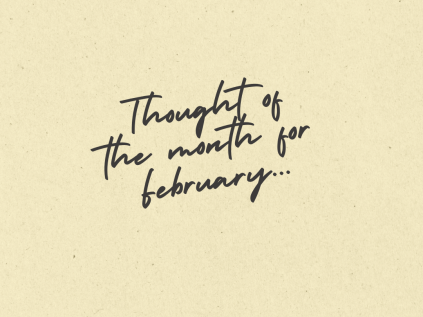 Thought of
the month for
february...